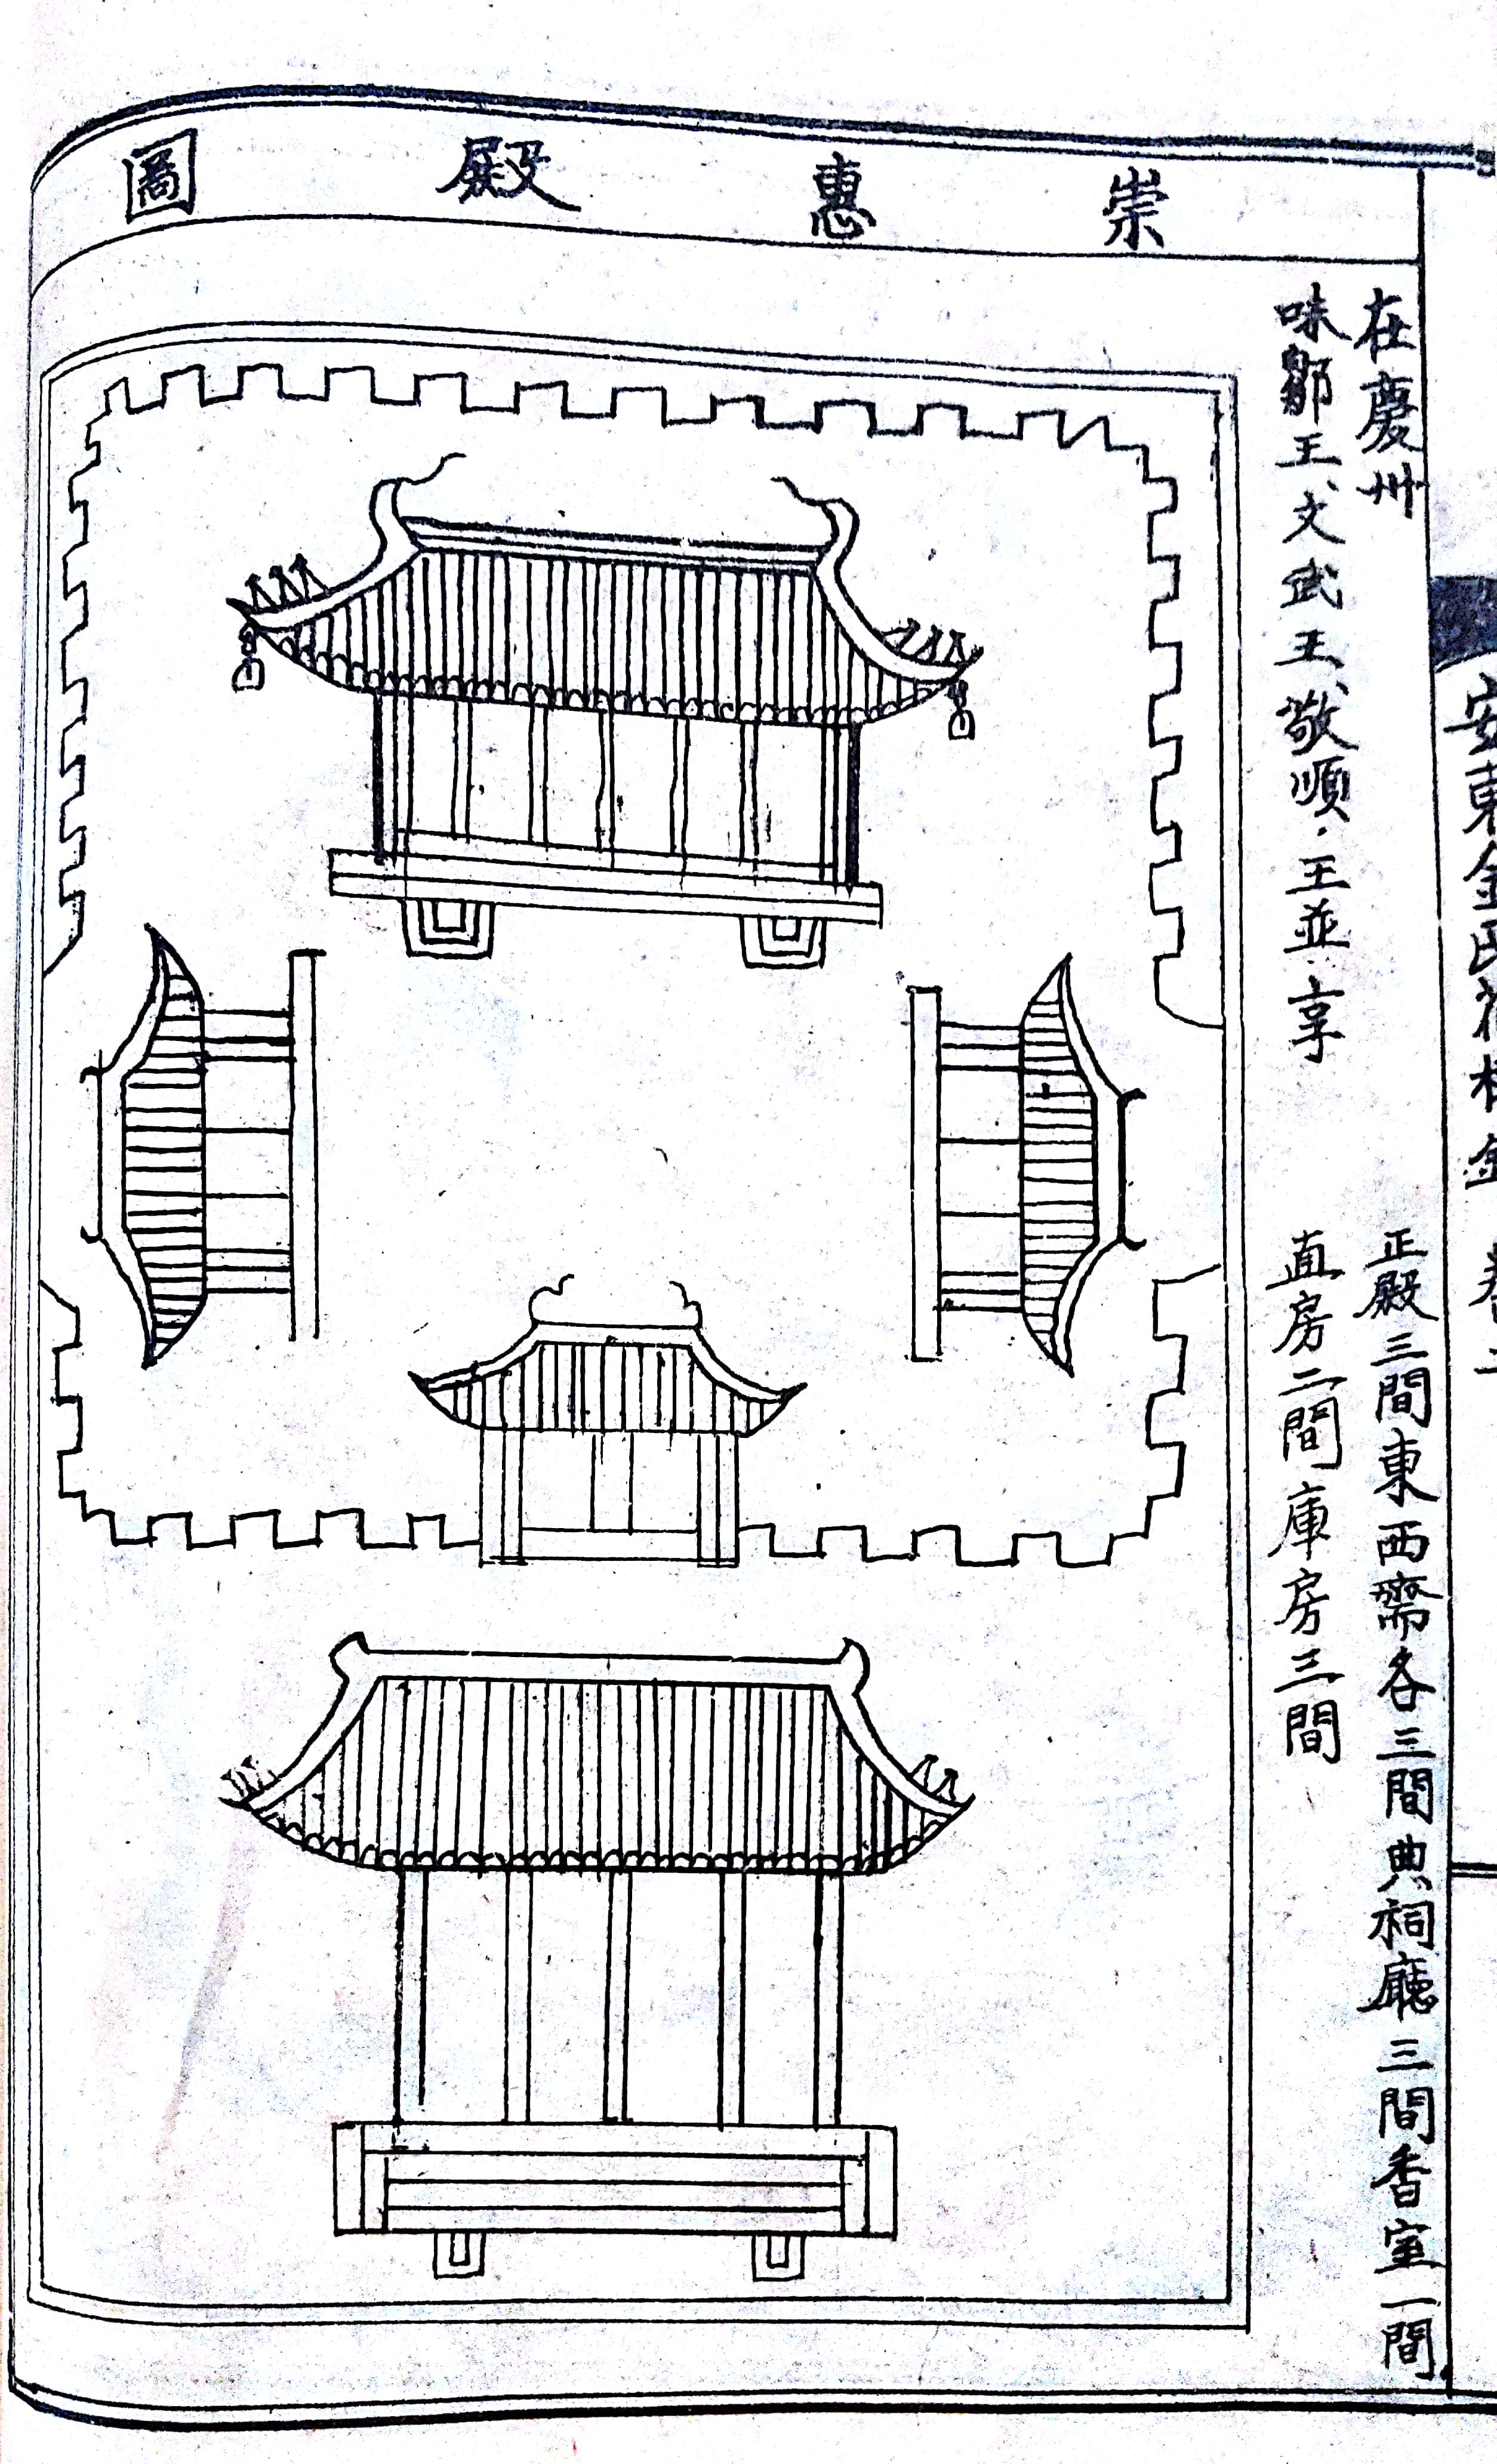 崇惠殿圖
在慶州
味鄒王、文武王、敬順·王並享
正殿三間東西齋各三間典祠廳三間香室一間
直房二間庫房三間
安東金氏